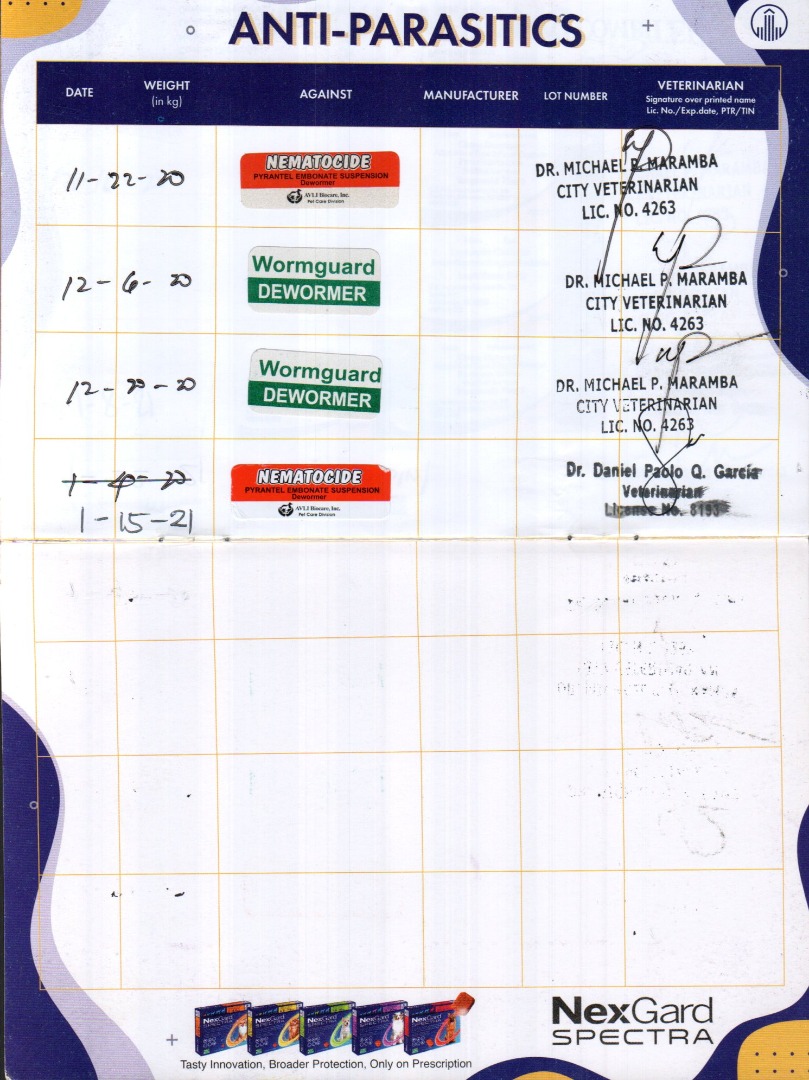 ANTI-PARASITICS
DATE
WEIGHT
(in kg)
AGAINST
MANUFACTURER
LOT NUMBER
VETERINARIAN
Signature over printed name
Lic. No./Exp.date, PTR/TIN
11-22-20
NEMATOCIDE
PYRANTEL EMBONATE SUSPENSION
Dewormer
AVLI Biocare, Inc.
Pet Care Division
DR. MICHAEL P. MARAMBA
CITY VETERINARIAN
LIC. NO. 4263
12-6-20
Wormguard
DEWORMER
DR. MICHAEL P. MARAMBA
CITY VETERINARIAN
LIC. NO. 4263
12-20-20
Wormguard
DEWORMER
DR. MICHAEL P. MARAMBA
CITY VETERINARIAN
LIC. NO. 4263
1-4-20
1-15-21
NEMATOCIDE
PYRANTEL EMBONATE SUSPENSION
Dewormer
AVLI Biocare, Inc.
Pet Care Division
Dr. Daniel Paolo Q. Garcia
Veterinarian
License No. 8193
NexGard
SPECTRA
Tasty Innovation, Broader Protection, Only on Prescription